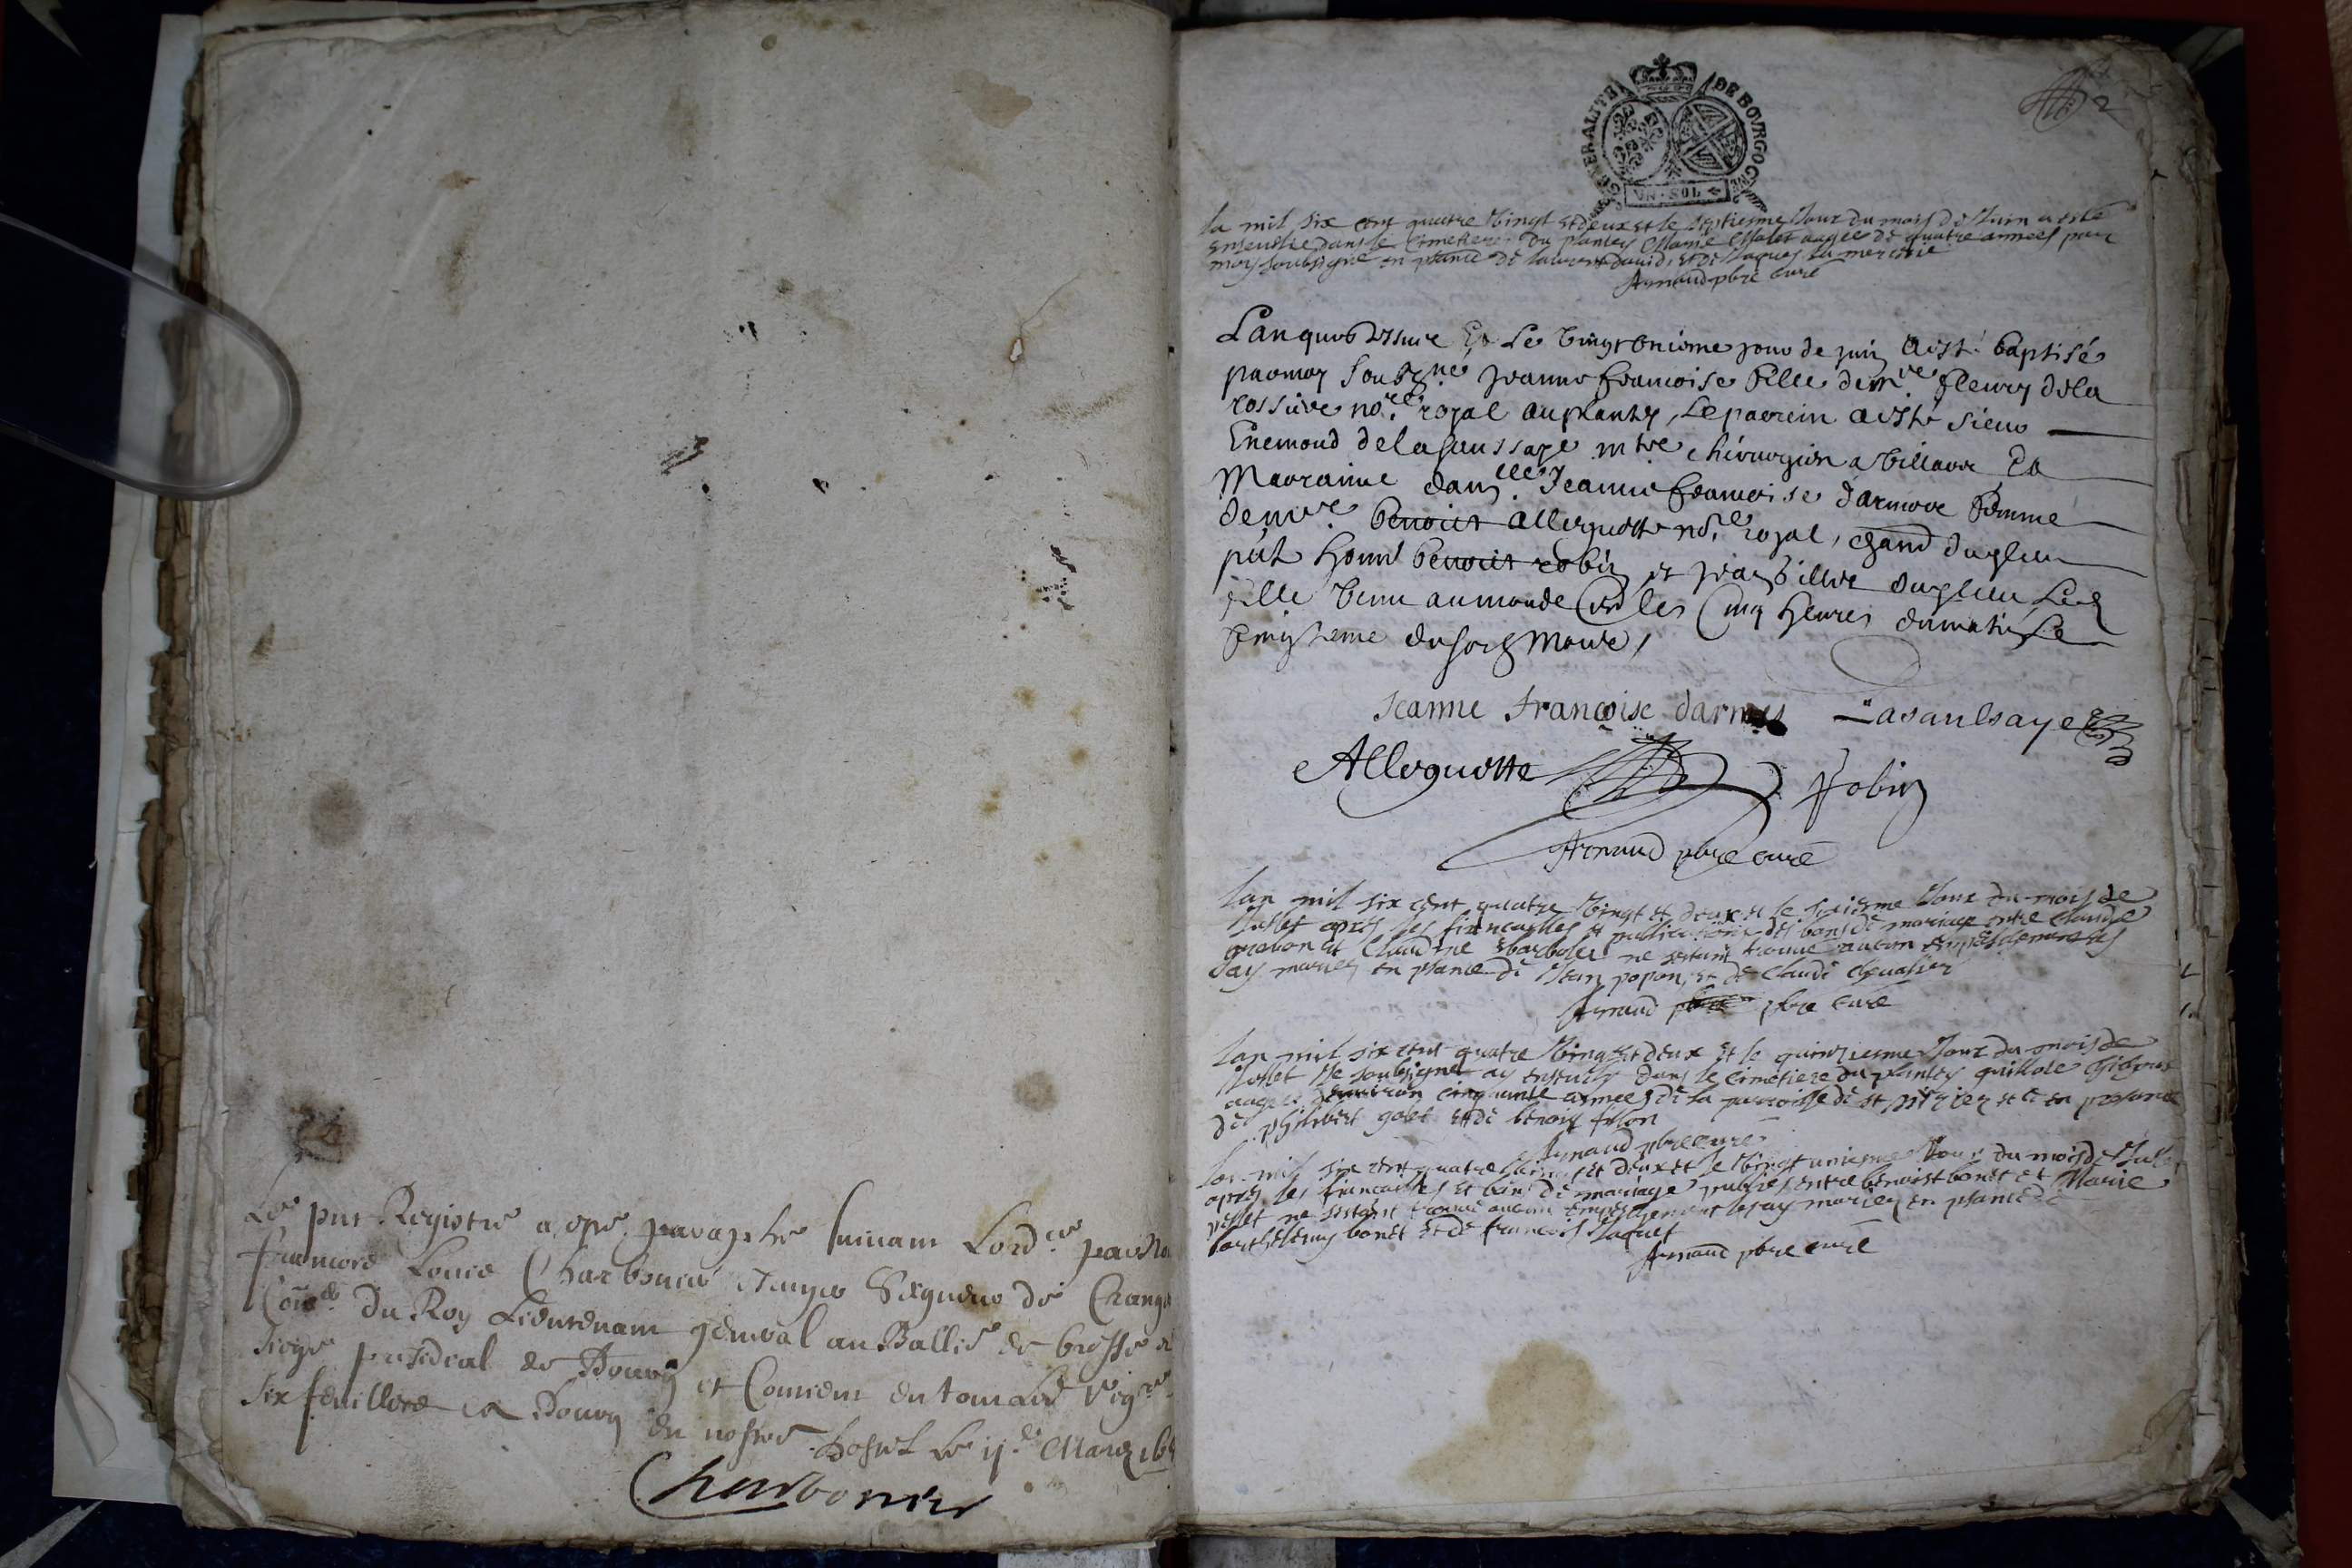 Le pnt Registre a este paraphé suivant Lord.ce par no
Louis Charbonnier Seigneur de Crang
Con.er du Roy Lieutenant general au Balliage de bresse et
siege presidial de Bourg et Contient en tout
six feuillets a Bourg en nostre hostel Le ij.e Mars 16
Charbonier
2
GENERALITE DE BOVRGOGNE
VN·SOL
la mil six cent quatre Vingt et deux et le septiesme Jour du mois de Juin a esté
ensevelie dans le Cimetiere du plantey Marie aagée de quatre années par
moy soubsigné en psance de laurent david, et de Jaques la mercerie
Arnaud pbre curé
L'an que dessus Et Le vingt onieme jour de juin a esté baptisé
par moy soubs.né jeanne francoise fille de m.re fleury dela
rossiere no.re royal au plantey, Le parrein a esté sieur
Enemond de la saussaye m.tre chirurgien a villars Et la
Marraine dam.lle Jeanne francoise darmes femme
de m.re benoict alloquotte no.re royal, dudit lieu
pnt honn. benoict robin et jean dudit lieu Lad.
fille venu au monde sur les Cinq heures du matin Le
vingtieme dusd. Mois,
Jeanne françoise darmes Lasaulsaye
Alloquotte Robin
Arnaud pbre curé
lan mil six cent quatre Vingt et deux et le Jour du mois de
Jullet apres les fiancailles et publications des bans de mariage entre claude
et Claudine ne sestant trouvé aucun empeschement les
ay mariez en psance de Jean popon, et de Claude chevallier
Arnaud pbre curé
lan mil six cent quatre Vingt et deux et le quinziesme Jour du mois de
Jullet Je soubsigné ay ensevely dans le cimetiere du plantey
aagée denviron cinquante années de la parroisse de st et ce en presence
de philibert golet et de benoist fillon
Arnaud pbre curé
lan mil six cent quatre Vingt et deux et le Vingt uniesme Jour du mois de Jullet
apres les fiancailles et bans de mariage publiés entre benoist bonet et Marie
ne sestant trouvé aucun empeschement le ay mariez en psance de
barthelemy bonet et de francois Jaquet
Arnaud pbre curé